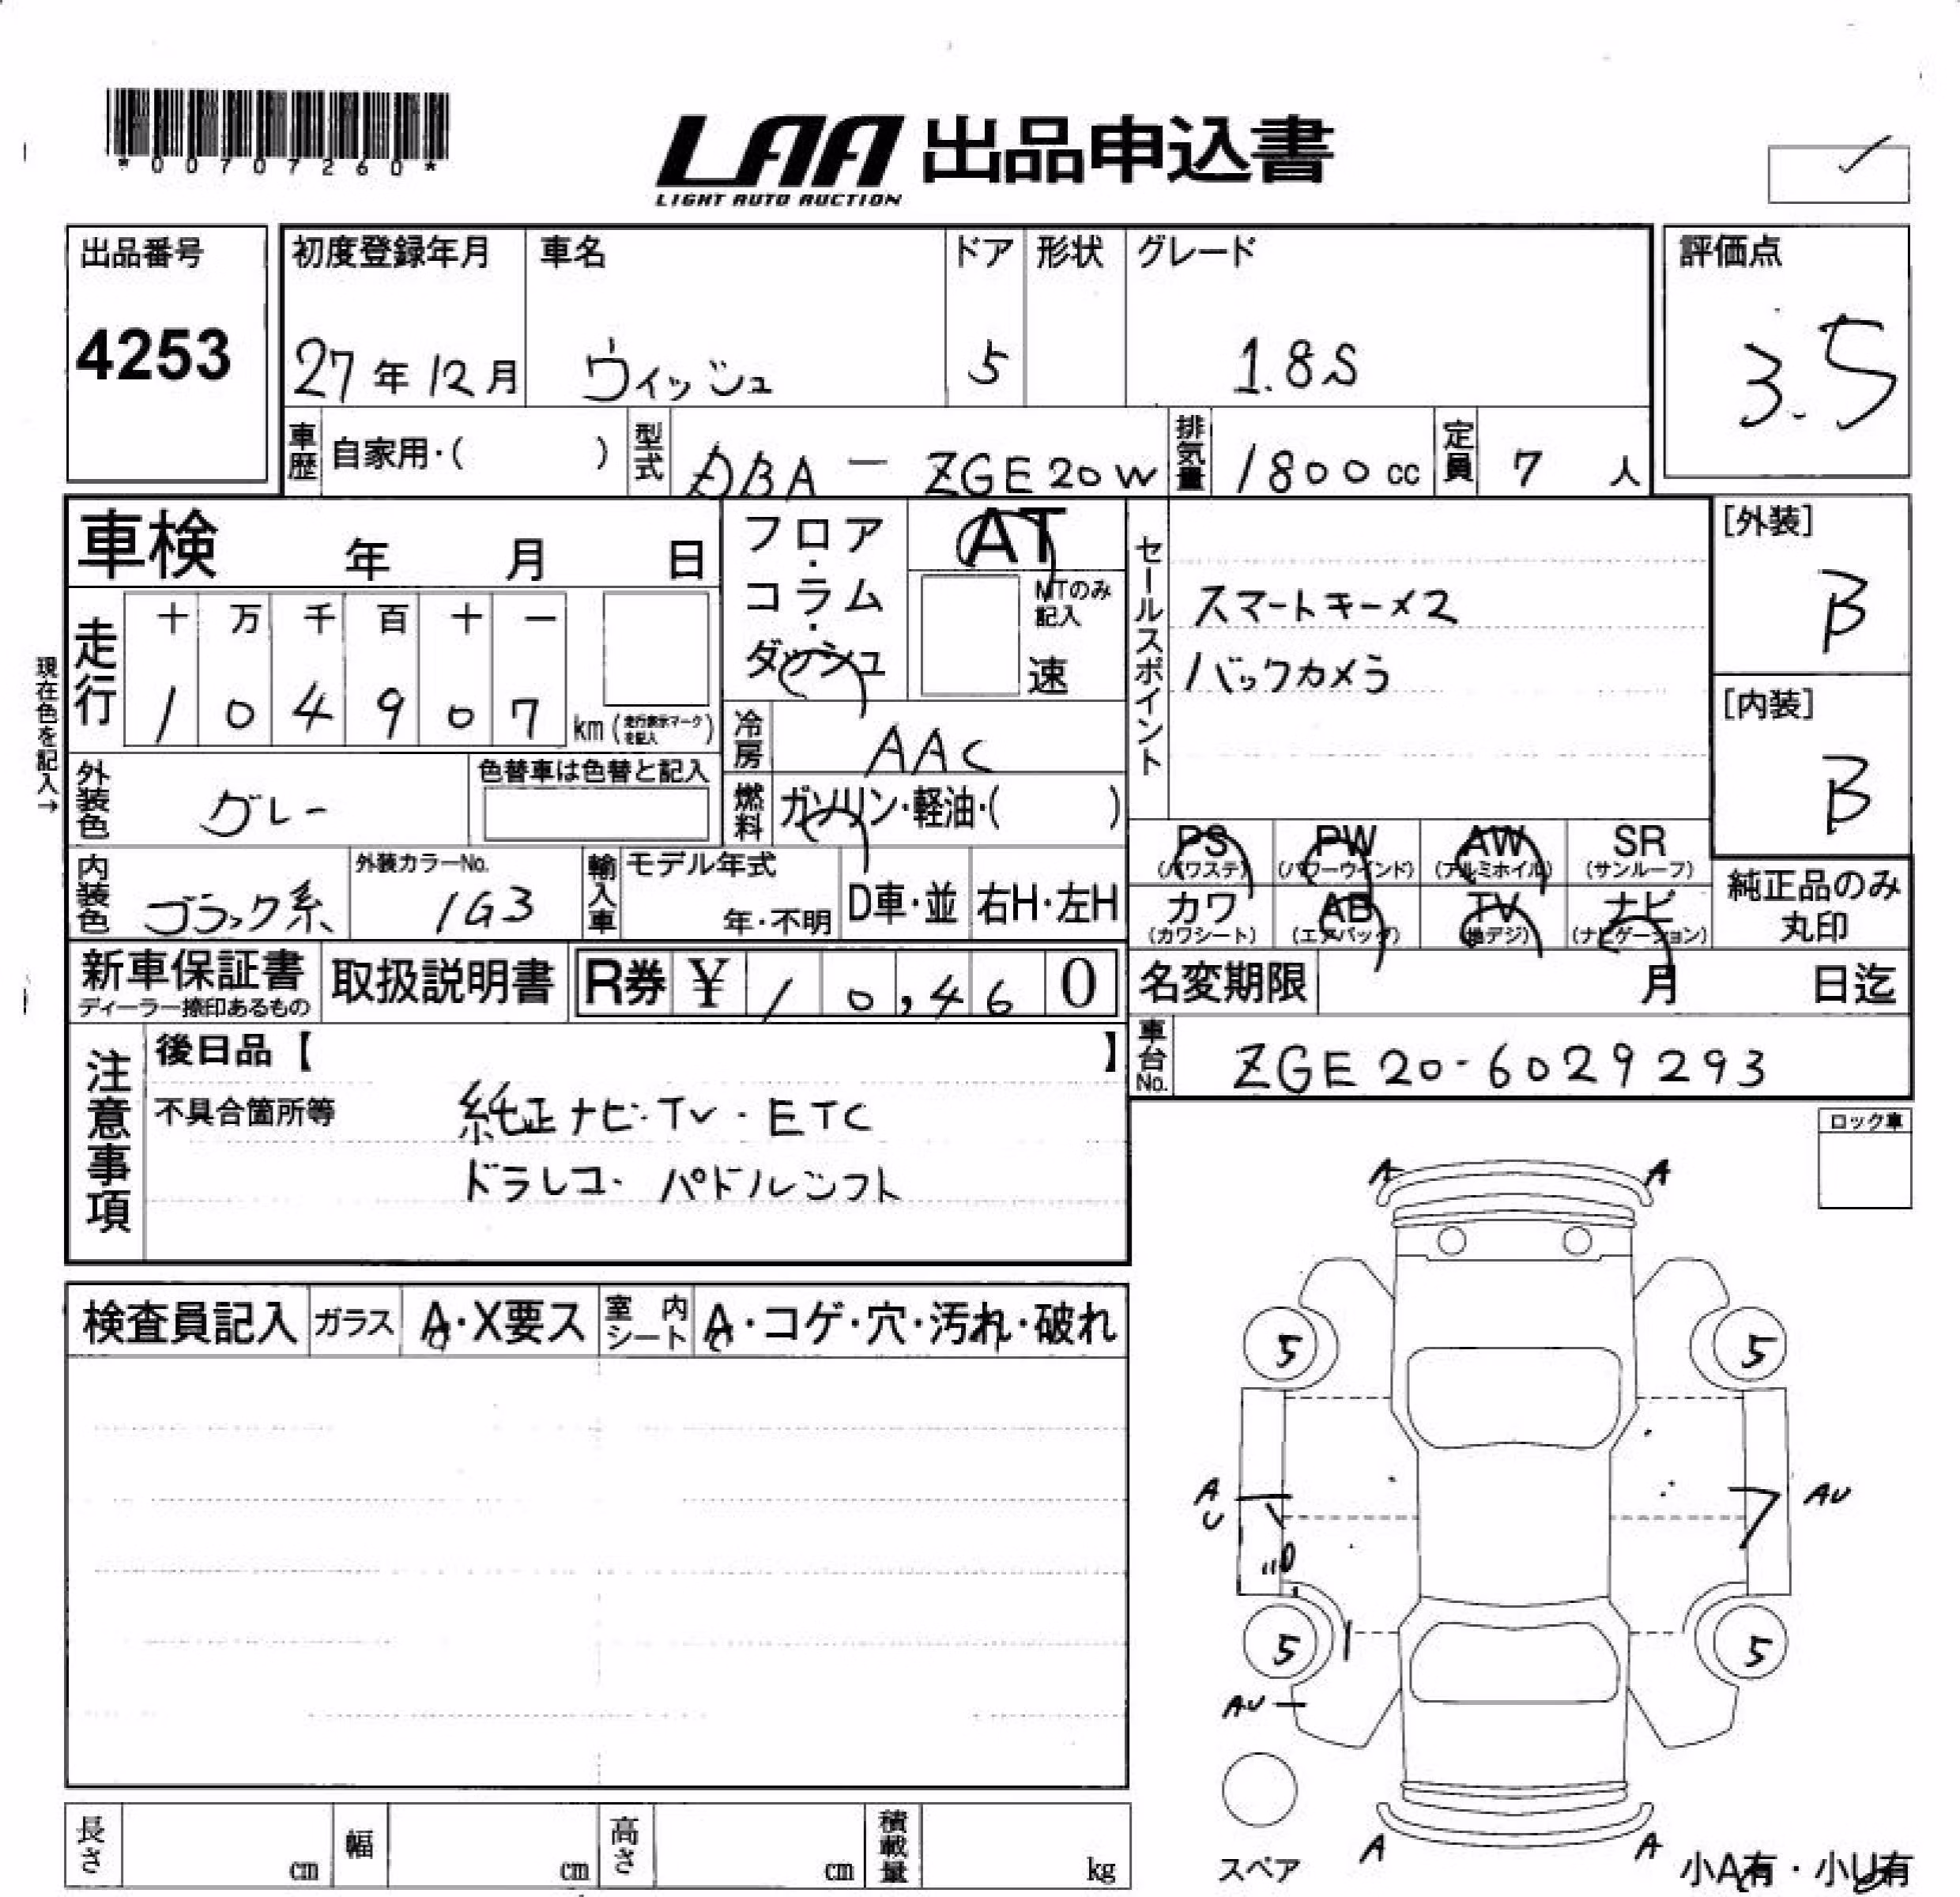 *00707260*
LAA 出品申込書
LIGHT AUTO AUCTION
出品番号
4253
初度登録年月 車名 ドア 形状 グレード
27年12月 ウィッシュ 5 1.8S
評価点
3.5
車歴 自家用・( ) 型式 DBA－ZGE20W 排気量 1800cc 定員 7人
車検 年 月 日
フロア・コラム・ダッシュ
AT
MTのみ記入
速
現在色を記入→
走行
十 万 千 百 十 一
1 0 4 9 0 7 km (走行表示マークを記入)
冷房 AAC
燃料 ガソリン・軽油・( )
外装色 グレー
色替車は色替と記入
内装色 ブラック系
外装カラーNo. 1G3
輸入車 モデル年式 年・不明 D車・並 右H・左H
セールスポイント
スマートキー×2
バックカメラ
[外装]
B
[内装]
B
PS (パワステ) PW (パワーウインド) AW (アルミホイル) SR (サンルーフ)
カワ (カワシート) AB (エアバッグ) TV (地デジ) ナビ (ナビゲーション)
純正品のみ丸印
新車保証書
ディーラー捺印あるもの
取扱説明書
R券 ¥ 10,460
名変期限 月 日迄
車台No. ZGE20-6029293
注意事項
後日品【 】
不具合箇所等
純正ナビ・TV・ETC
ドラレコ・パドルシフト
ロック車
検査員記入 ガラス A・X要ス 室内シート A・コゲ・穴・汚れ・破れ
A A
5 5
A
U
AU
5 5
AU
スペア
A A
小A有・小U有
長さ cm 幅 cm 高さ cm 積載量 kg